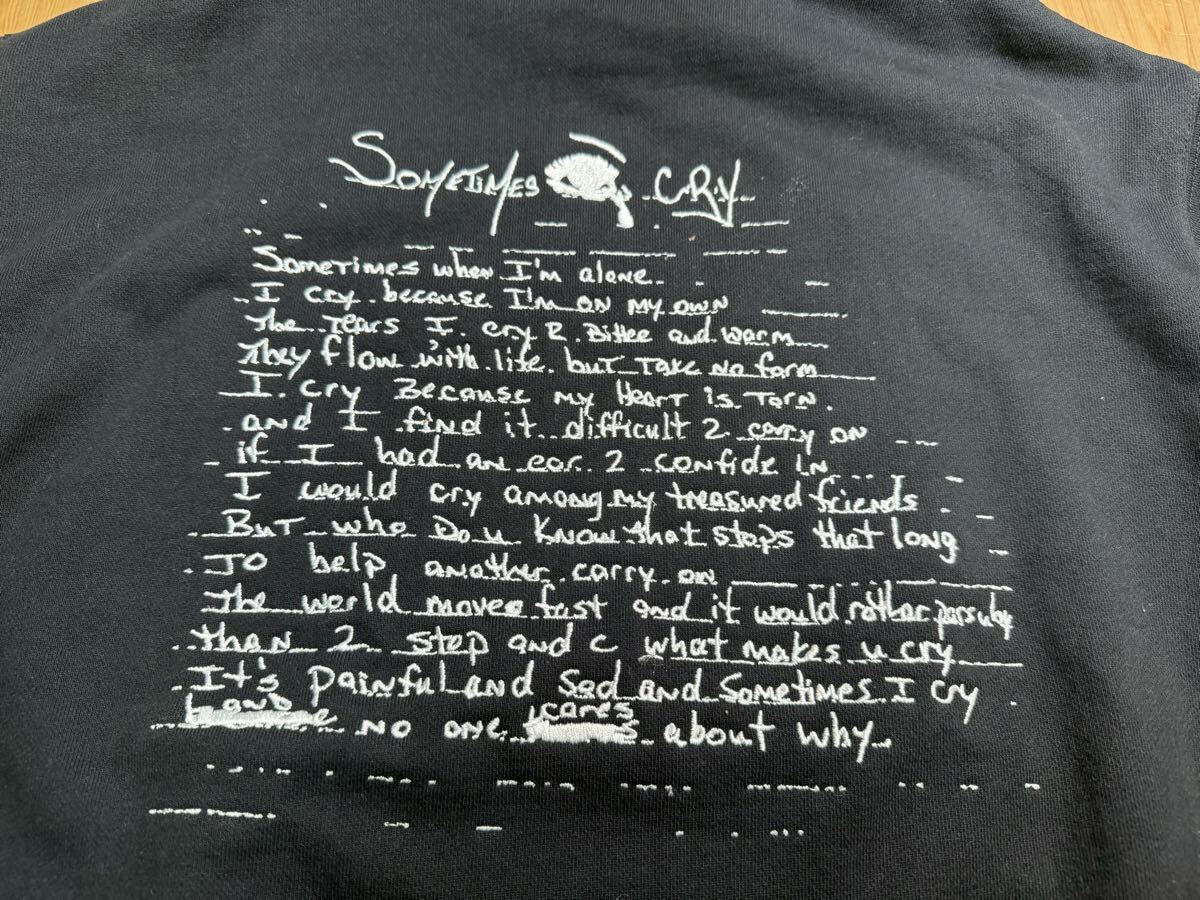 SOMETIMES CRY
Sometimes when I'm alone
I cry because I'm on my own
The Tears I cry R Bitter and warm
They flow with life but Take No form
I cry Because my Heart is Torn
and I find it difficult 2 carry on
if I had an ear 2 confide in
I would cry among my treasured friends
But who Do u Know that stops that long
To help another carry on
The world moves fast and it would rather pass u by
than 2 stop and C what makes u cry
It's painful and sad and Sometimes I cry
and no one cares about why